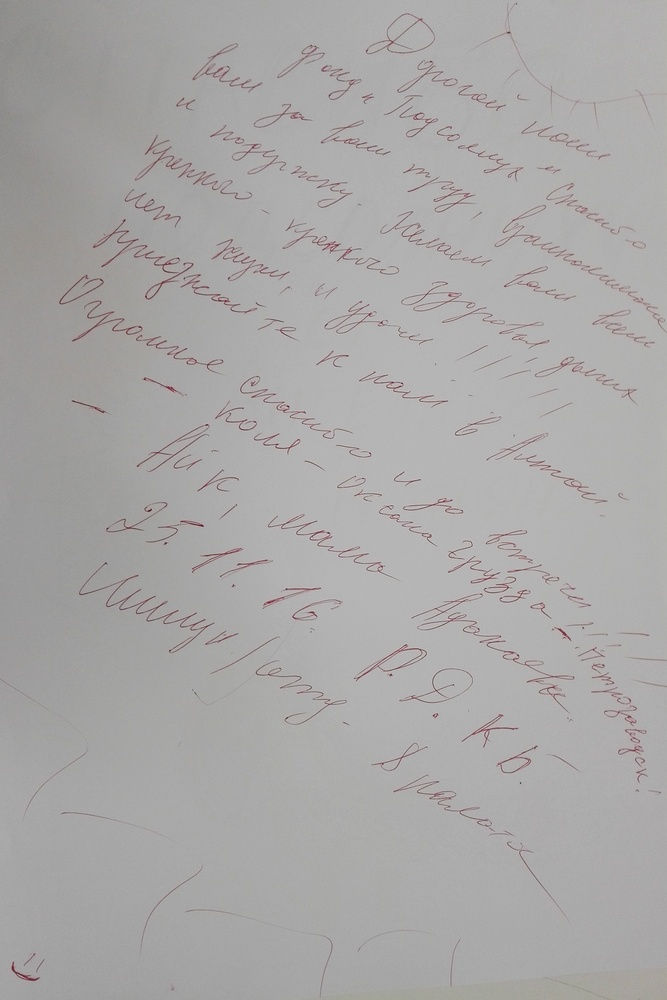 Дорогой наш
фонд "Подсолнух" Спасибо
вам за ваш труд, взаимопонимание
и подержку. Желаем вам вам
крепкого - крепкого здоровья, долгих
лет жизни, и удачи !!!!!
Приезжайте к нам в Алтай.
Огромное спасибо и до встречи!!!
Коля - Оксана Груздо - Петрозаводск!
Айк, мама
25. 11. 16. Р. Д. К Б.
8 палата
11